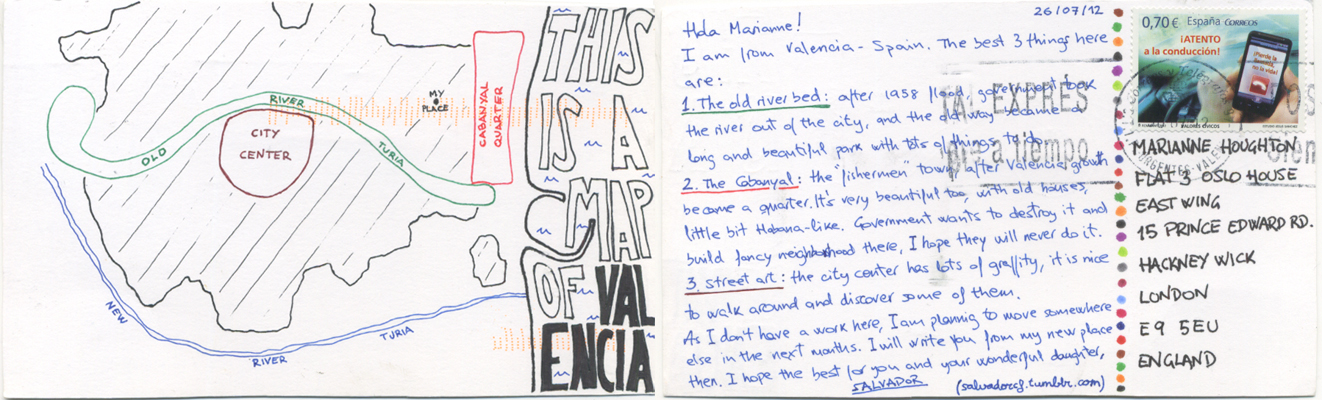 THIS
IS A
MAP
OF VAL
ENCIA
MY
PLACE
CABANYAL
QUARTER
CITY
CENTER
OLD RIVER TURIA
NEW RIVER TURIA
26/07/12
Hola Marianne!
I am from Valencia - Spain. The best 3 things here
are:
1. The old river bed: after 1958 flood government took
the river out of the city, and the old way became a
long and beautiful park with lots of things to do
2. The Cabanyal: the fishermen town, after Valencia growth
become a quarter. It's very beautiful too, with old houses,
little bit Habana-like. Government wants to destroy it and
build fancy neighborhood there, I hope they will never do it.
3. street art: the city center has lots of graffity, it is nice
to walk around and discover some of them.
As I don't have a work here, I am plannig to move somewhere
else in the next months. I will write you from my new place
then. I hope the best for you and your wonderful daughter,
SALVADOR
0,70€ España CORREOS
¡ATENTO
a la conducción!
VALORES CÍVICOS
EXPRÉS
a tiempo
MARIANNE HOUGHTON
FLAT 3 OSLO HOUSE
EAST WING
15 PRINCE EDWARD RD.
HACKNEY WICK
LONDON
E9 5EU
ENGLAND